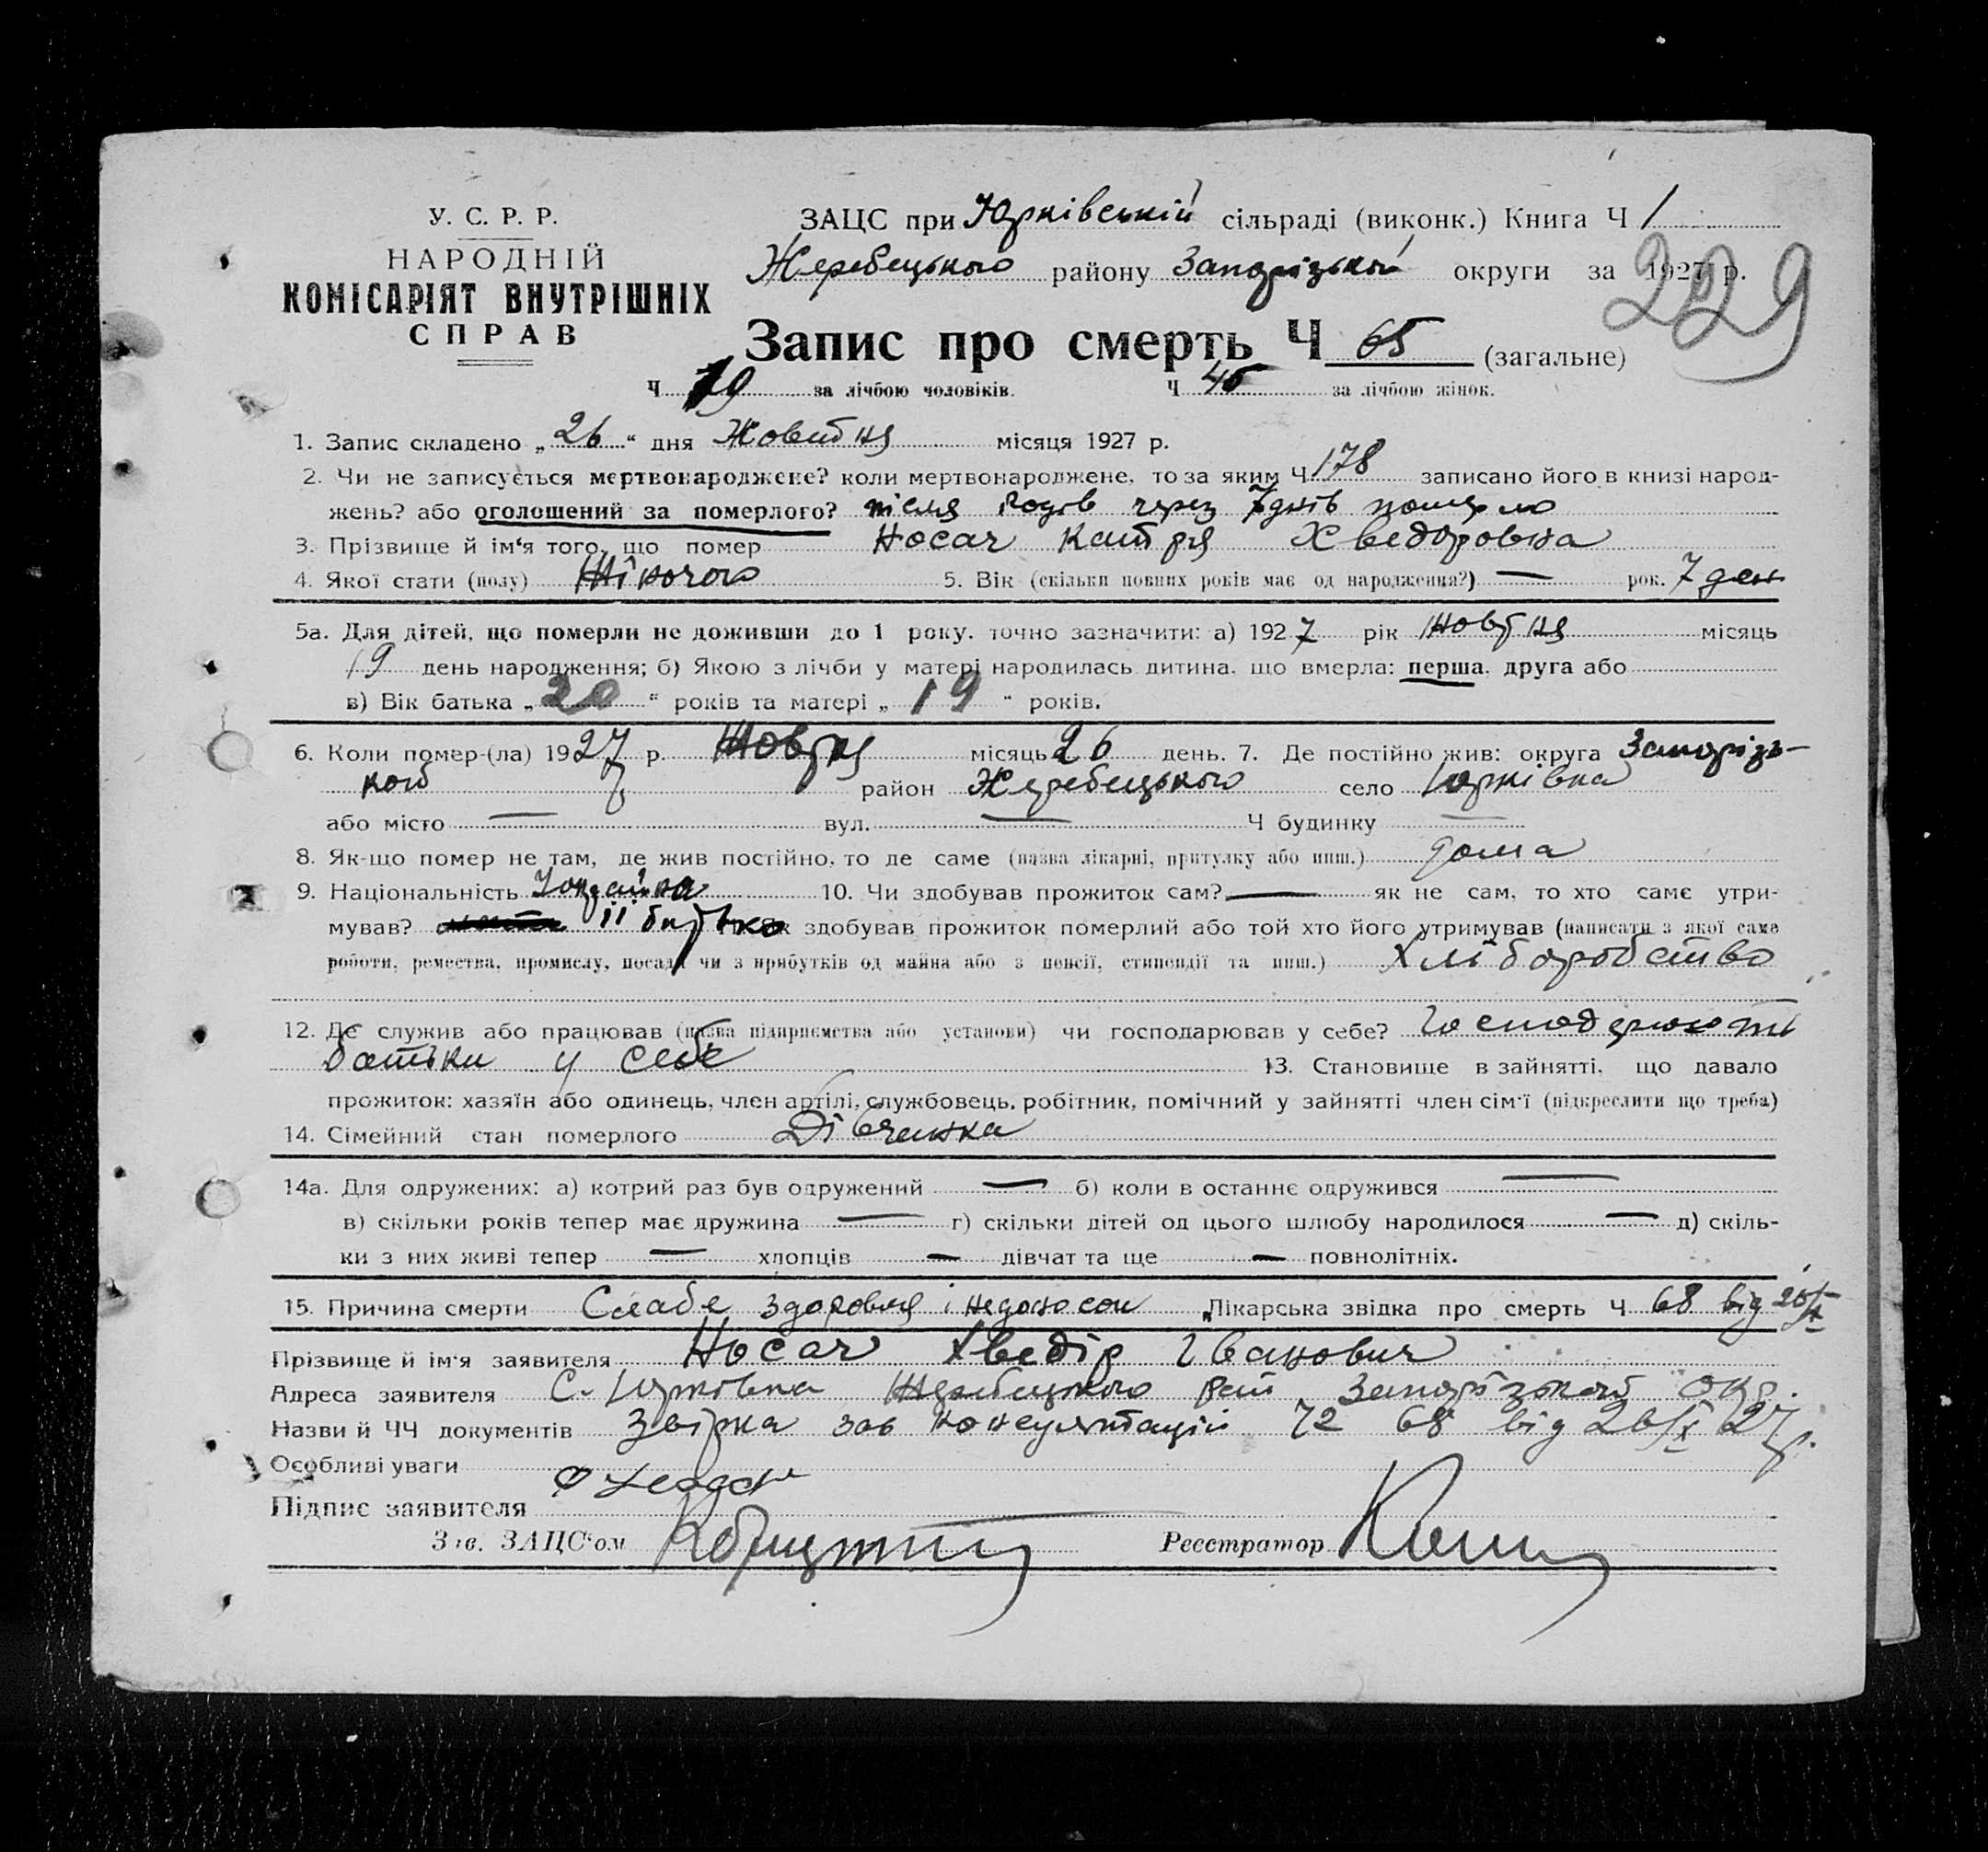 У. С. Р. Р.
НАРОДНІЙ
КОМІСАРІЯТ ВНУТРІШНІХ
СПРАВ
ЗАЦС при Юрківській сільраді (виконк.) Книга Ч 1
Жеребецького району Запорізької округи за 1927 р.
229
Запис про смерть Ч 65 (загальне)
Ч 19 за лічбою чоловіків. Ч 46 за лічбою жінок.
1. Запис складено „ 26 “ дня Жовтня місяця 1927 р.
2. Чи не записується мертвонароджене? коли мертвонароджене, то за яким Ч 178 записано його в книзі народ-
жень? або оголошений за померлого? після родів через 7 днів померло
3. Прізвище й ім‘я того, що помер Носач Катря Хведоровна
4. Якої стати (полу) Жіночого 5. Вік (скільки повних років має од народження?) — рок. 7 ден
5а. Для дітей, що померли не доживши до 1 року. точно зазначити: а) 1927 рік Жовтня місяць
19 день народження; б) Якою з лічби у матері народилась дитина, що вмерла: перша, друга або
в) Вік батька „ 20 “ років та матері „ 19 “ років.
6. Коли помер-(ла) 1927 р. Жовтня місяць 26 день. 7. Де постійно жив: округа Запорізь-
кої район Жеребецького село Юрківка
або місто — вул. — Ч будинку —
8. Як-що помер не там, де жив постійно, то де саме (назва лікарні, притулку або инш.) дома
9. Національність Українка 10. Чи здобував прожиток сам? — як не сам, то хто саме утри-
мував? її батько здобував прожиток померлий або той хто його утримував (написати з якої саме
роботи, ремества, промислу, посади чи з прибутків од майна або з пенсії, стипендії та инш.) Хліборобство
12. Де служив або працював (назва підприємства або установи) чи господарював у себе? Господарюють
батьки у себе 13. Становище в зайнятті, що давало
прожиток: хазяїн або одинець, член артілі, службовець, робітник, помічний у зайнятті член сім‘ї (підкреслити що треба)
14. Сімейний стан померлого Дівчинка
14а. Для одружених: а) котрий раз був одружений — б) коли в останнє одружився —
в) скільки років тепер має дружина — г) скільки дітей од цього шлюбу народилося — д) скіль-
ки з них живі тепер — хлопців — дівчат та ще — повнолітніх.
15. Причина смерти Слабе здоровля і недоносок Лікарська звідка про смерть Ч 68 від 26/X
Прізвище й ім‘я заявителя Носач Хведір Іванович
Адреса заявителя С. Юрківка Жеребецького рай Запорізької окр.
Назви й ЧЧ документів консультації 68 від 26/X 27 р.
Особливі уваги
Підпис заявителя
Зав. ЗАЦС‘ом
Реєстратор